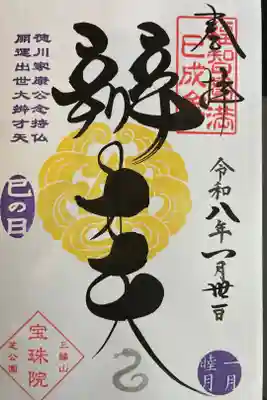 奉拝
福知円満
巳成金
令和八年一月廿一日
一月
睦月
辨才天
徳川家康公念持仏
開運出世大辨才天
巳の日
三縁山
宝珠院
芝公園